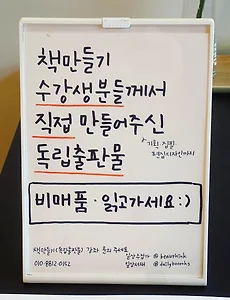 책만들기
수강생분들께서
직접 만들어주신
기획, 집필,
편집디자인까지
독립출판물
비매품·읽고가세요:)
책만들기(독립출판물) 강좌 문의 주세요
010-8812-0152